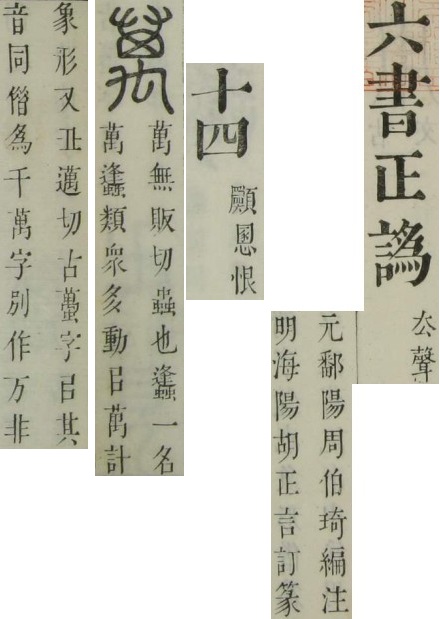 六書正譌
厺聲
元鄱陽周伯琦編注
明海陽胡正言訂篆
十四
願慁恨
萬
萬無販切蟲也蠭一名
萬蠭類衆多動㠯萬計
象形又丑邁切古蠆字㠯其
音同僭爲千萬字別作万非